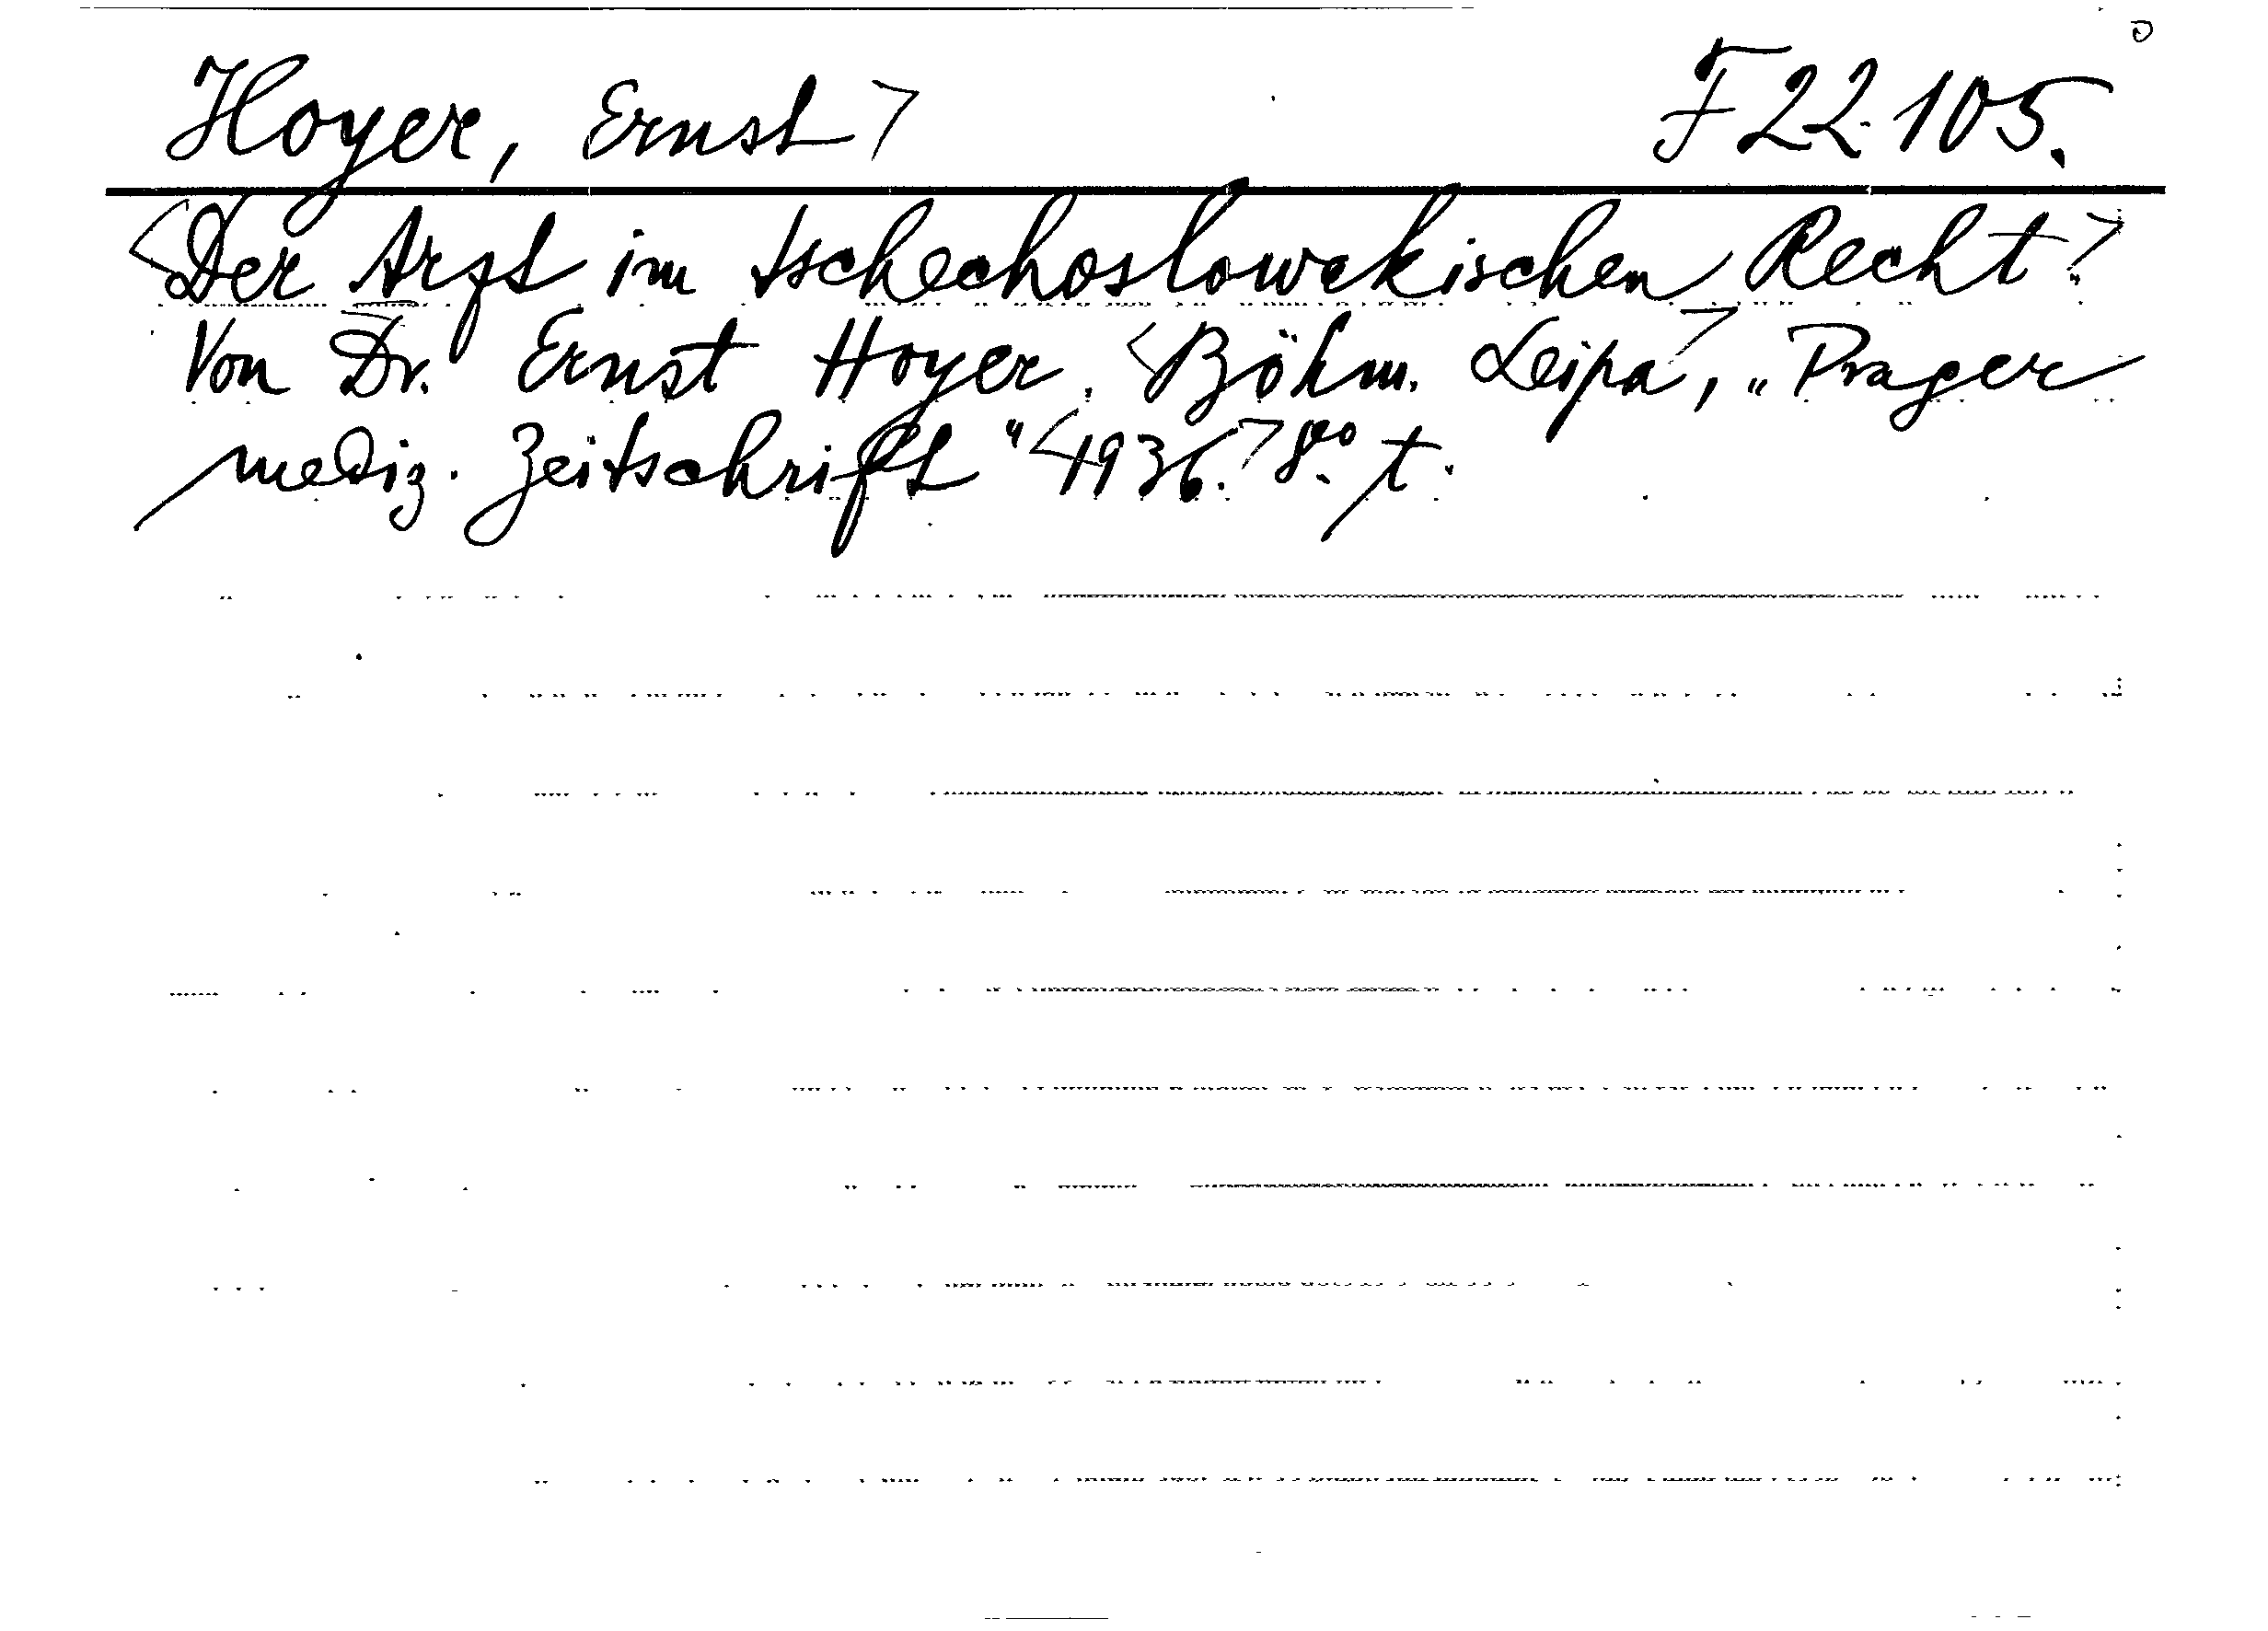 Hoyer, Ernst> F 22.105.
<Der Arzt im tschechoslowakischen Recht.>
Von Dr. Ernst Hoyer. <Böhm. Leipa>, „Prager
mediz. Zeitschrift" <1936.> 8°. t.